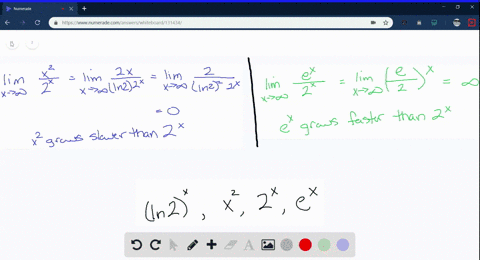 Numerade
https://www.numerade.com/answers/whiteboard/131434/
lim x→∞ x²/2ˣ = lim x→∞ 2x/(ln2)2ˣ = lim x→∞ 2/(ln2)² 2ˣ
= 0
x² grows slower than 2ˣ
lim x→∞ eˣ/2ˣ = lim x→∞ (e/2)ˣ = ∞
eˣ grows faster than 2ˣ
(ln2)ˣ, x², 2ˣ, eˣ